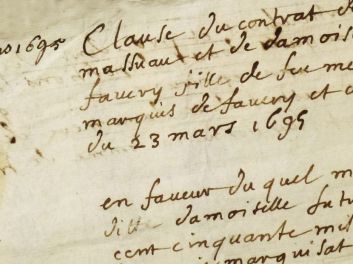 1695 Clause du contrat de
massuau et de damois
favery fille de feu me
marquis de favery et
du 23 mars 1695
en faveur du quel m
ditte damoiselle futu
cent cinquante mil
marquisat